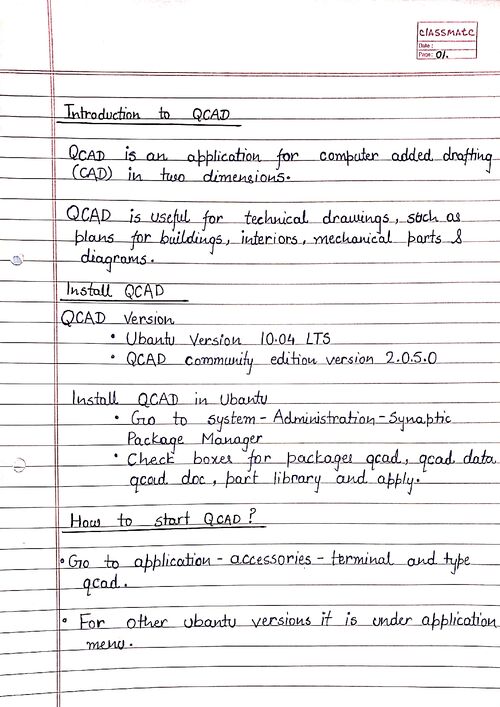 classmate
Date :
Page: 01.
Introduction to QCAD
QCAD is an application for computer added drafting
(CAD) in two dimensions.
QCAD is useful for technical drawings, such as
plans for buildings, interiors, mechanical parts &
diagrams.
Install QCAD
QCAD Version
• Ubantu Version 10.04 LTS
• QCAD community edition version 2.0.5.0
Install QCAD in Ubantu
• Go to system - Administration - Synaptic
Package Manager
• Check boxes for packages qcad, qcad data
qcad doc, part library and apply.
How to start QCAD?
• Go to application - accessories - terminal and type
qcad.
• For other ubantu versions it is under application
menu.